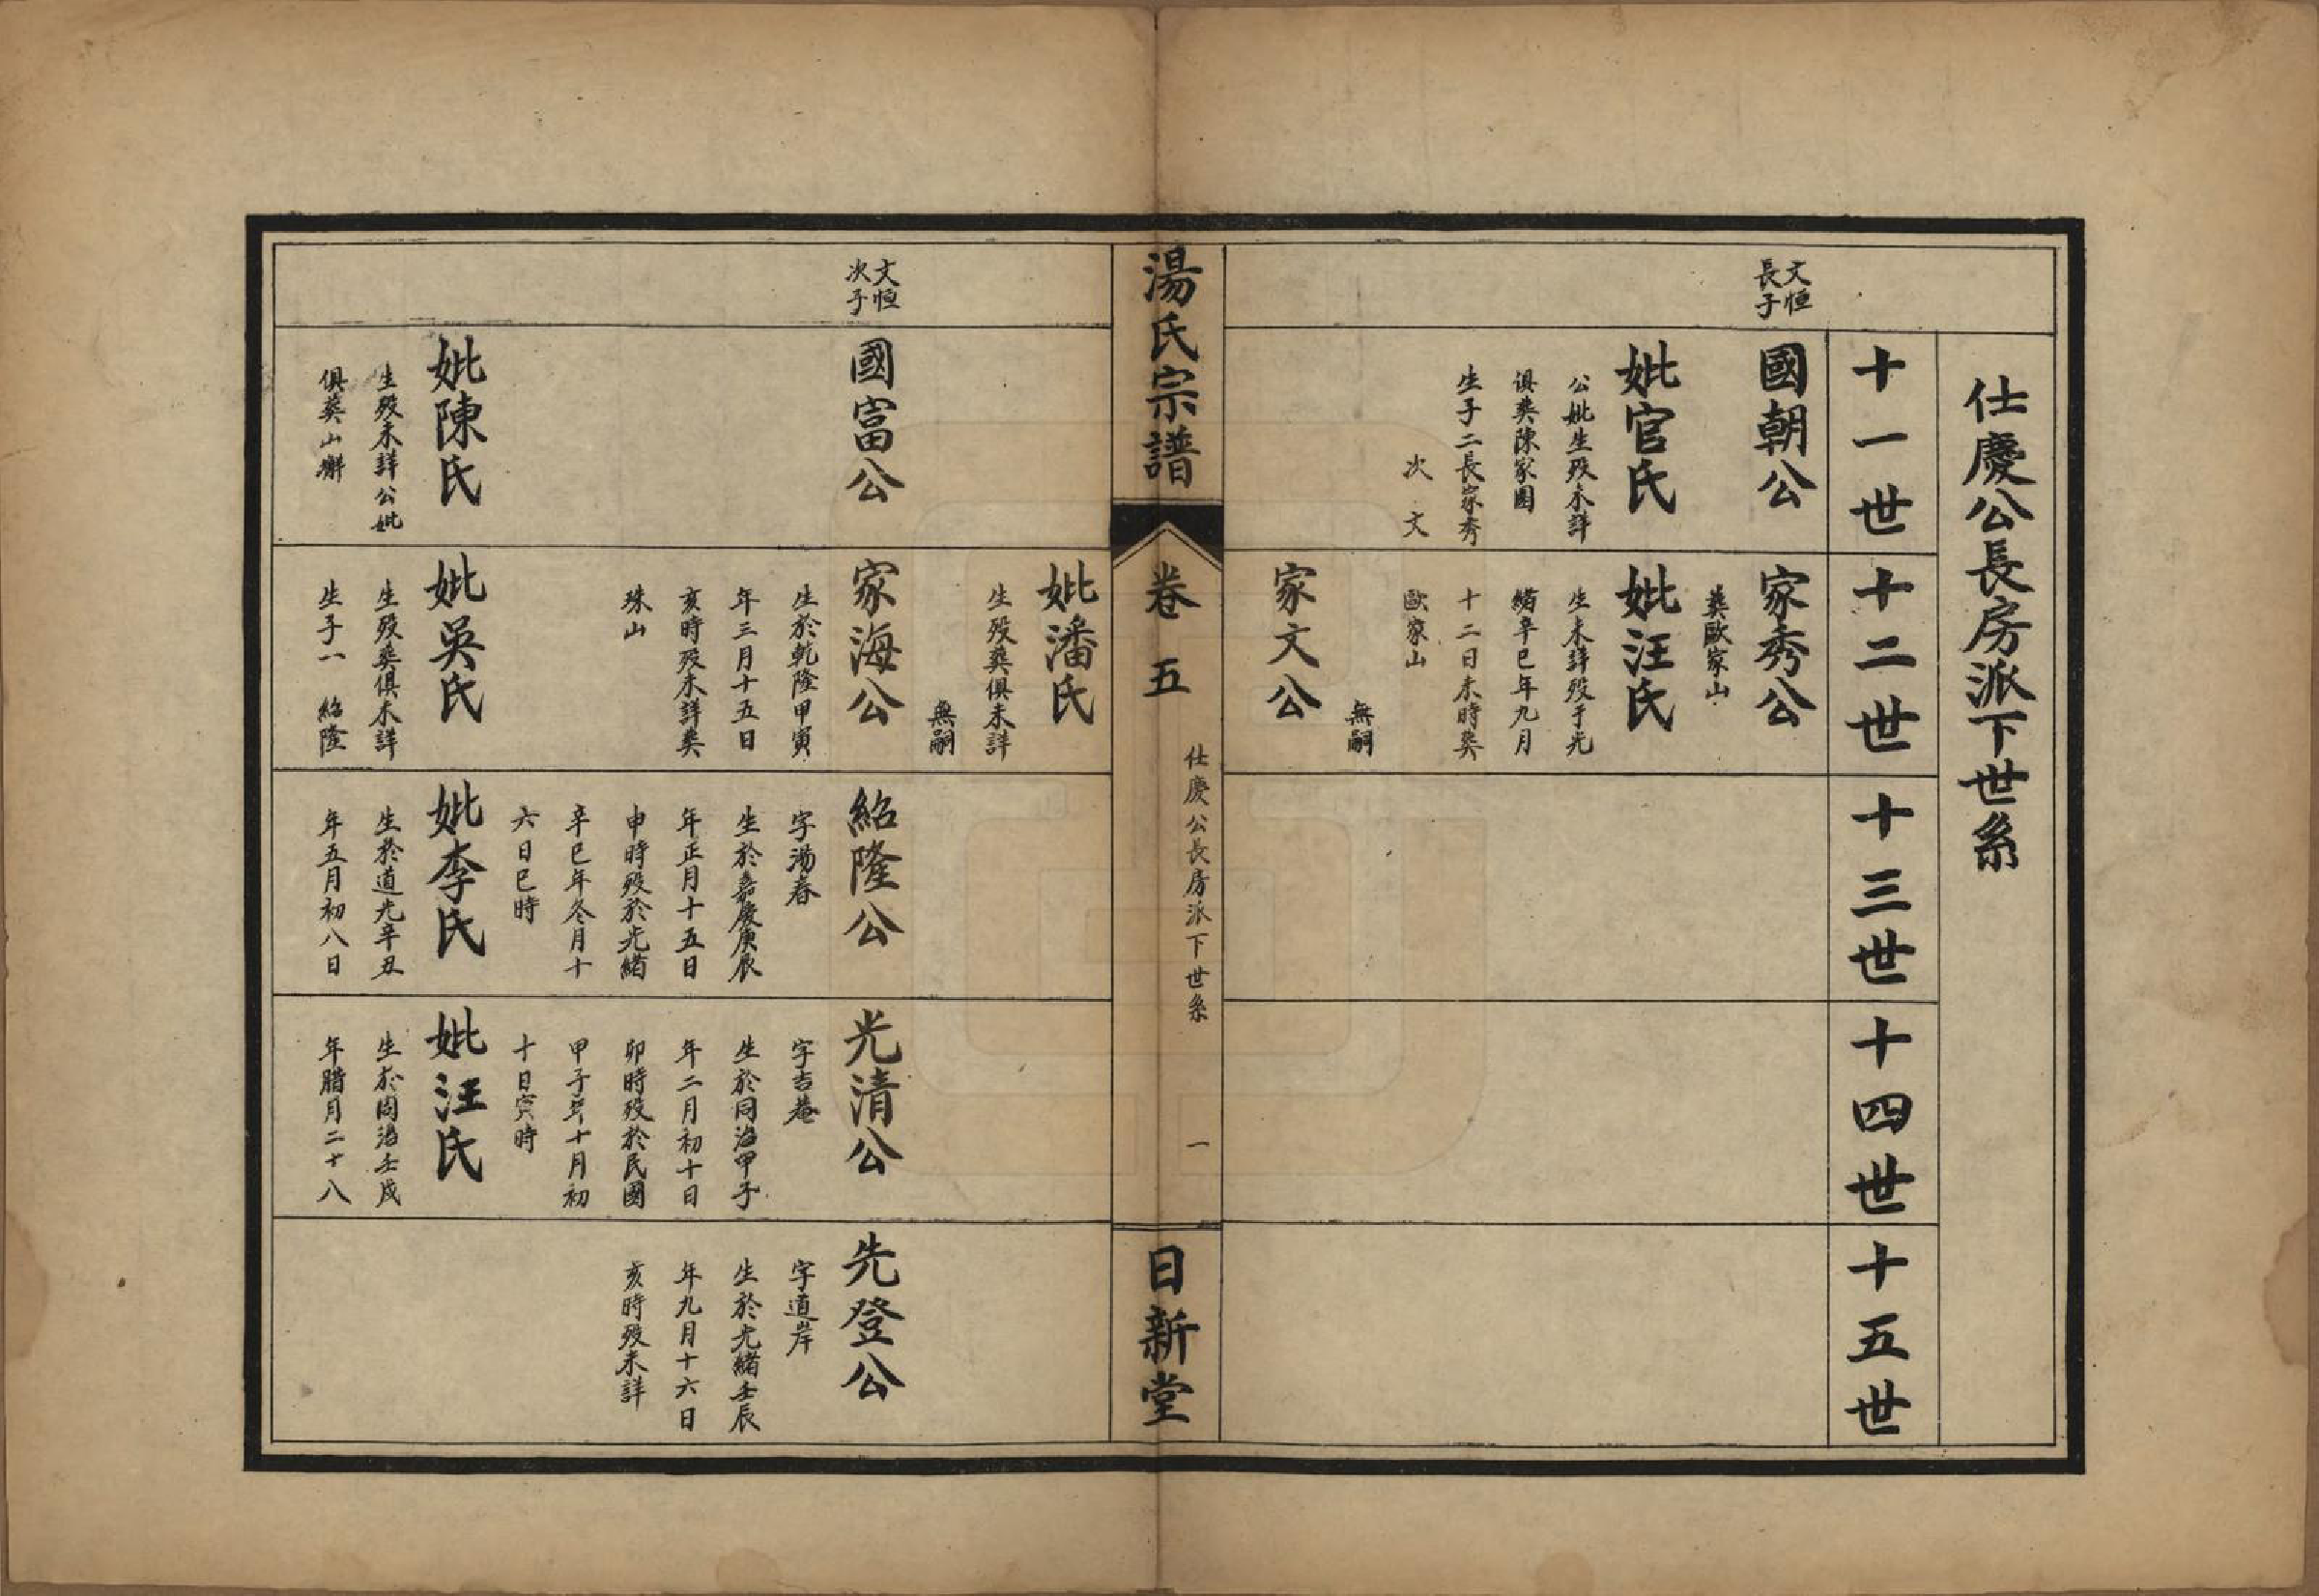 仕慶公長房派下世系
十一世
十二世
十三世
十四世
十五世
文恒
長子
國朝公
妣官氏
公妣生歿未詳
俱葬陳家園
生子二長家秀
次文
家秀公
葬歐家山
妣汪氏
生未詳歿于光
緒辛巳年九月
十二日未時葬
歐家山
無嗣
家文公
湯氏宗譜
卷五
仕慶公長房派下世系
一
日新堂
妣潘氏
生歿葬俱未詳
無嗣
文恒
次子
國富公
妣陳氏
生歿未詳公妣
俱葬山塝
家海公
生於乾隆甲寅
年三月十五日
亥時歿未詳葬
珠山
妣吳氏
生歿葬俱未詳
生子一 紹隆
紹隆公
字湯春
生於嘉慶庚辰
年正月十五日
申時歿於光緒
辛巳年冬月十
六日巳時
妣李氏
生於道光辛丑
年五月初八日
光清公
字吉菴
生於同治甲子
年二月初十日
卯時歿於民國
甲子年十月初
十日寅時
妣汪氏
生於同治壬戌
年腊月二十八
先登公
字道岸
生於光緒壬辰
年九月十六日
亥時歿未詳